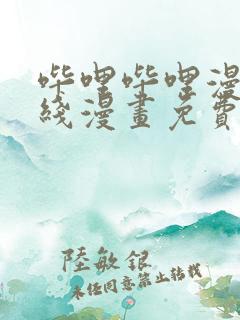 哔哩哔哩漫
綫漫畫免費
陸敏銀
未经同意禁止转载